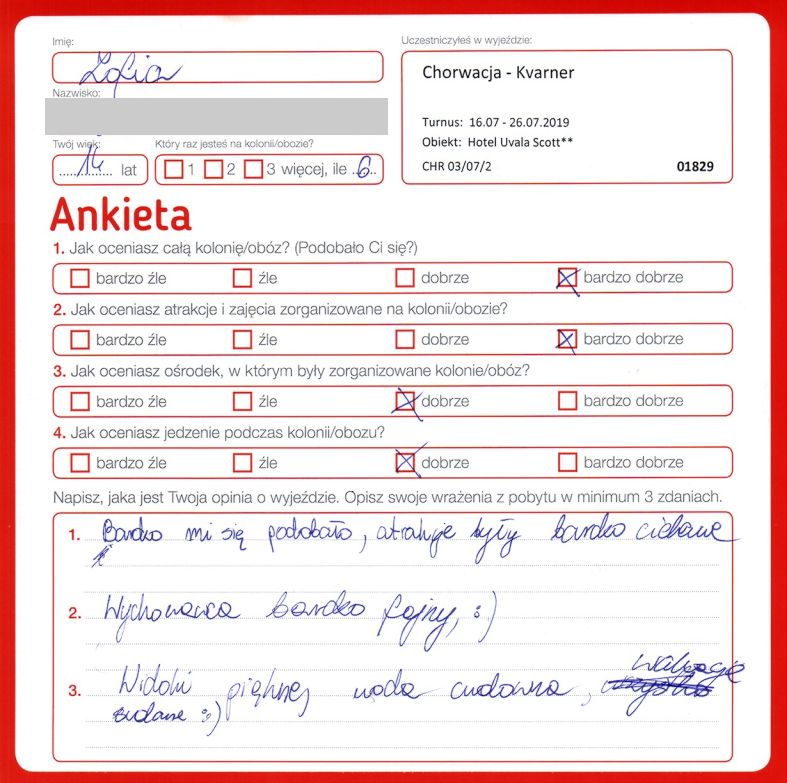 Imię:
Zofia
Nazwisko:
Twój wiek:
14 lat
Który raz jesteś na kolonii/obozie?
1 2 3 więcej, ile ..6..
Uczestniczyłeś w wyjeździe:
Chorwacja - Kvarner
Turnus: 16.07 - 26.07.2019
Obiekt: Hotel Uvala Scott**
CHR 03/07/2 01829
Ankieta
1. Jak oceniasz całą kolonię/obóz? (Podobało Ci się?)
bardzo źle źle dobrze bardzo dobrze
2. Jak oceniasz atrakcje i zajęcia zorganizowane na kolonii/obozie?
bardzo źle źle dobrze bardzo dobrze
3. Jak oceniasz ośrodek, w którym były zorganizowane kolonie/obóz?
bardzo źle źle dobrze bardzo dobrze
4. Jak oceniasz jedzenie podczas kolonii/obozu?
bardzo źle źle dobrze bardzo dobrze
Napisz, jaka jest Twoja opinia o wyjeździe. Opisz swoje wrażenia z pobytu w minimum 3 zdaniach.
1. Bardzo mi się podobało, atrakcje były bardzo ciekawe
2. Wychowawca bardzo fajny, :)
wakacje
3. Widoki piękne, woda cudowna,
udane :)